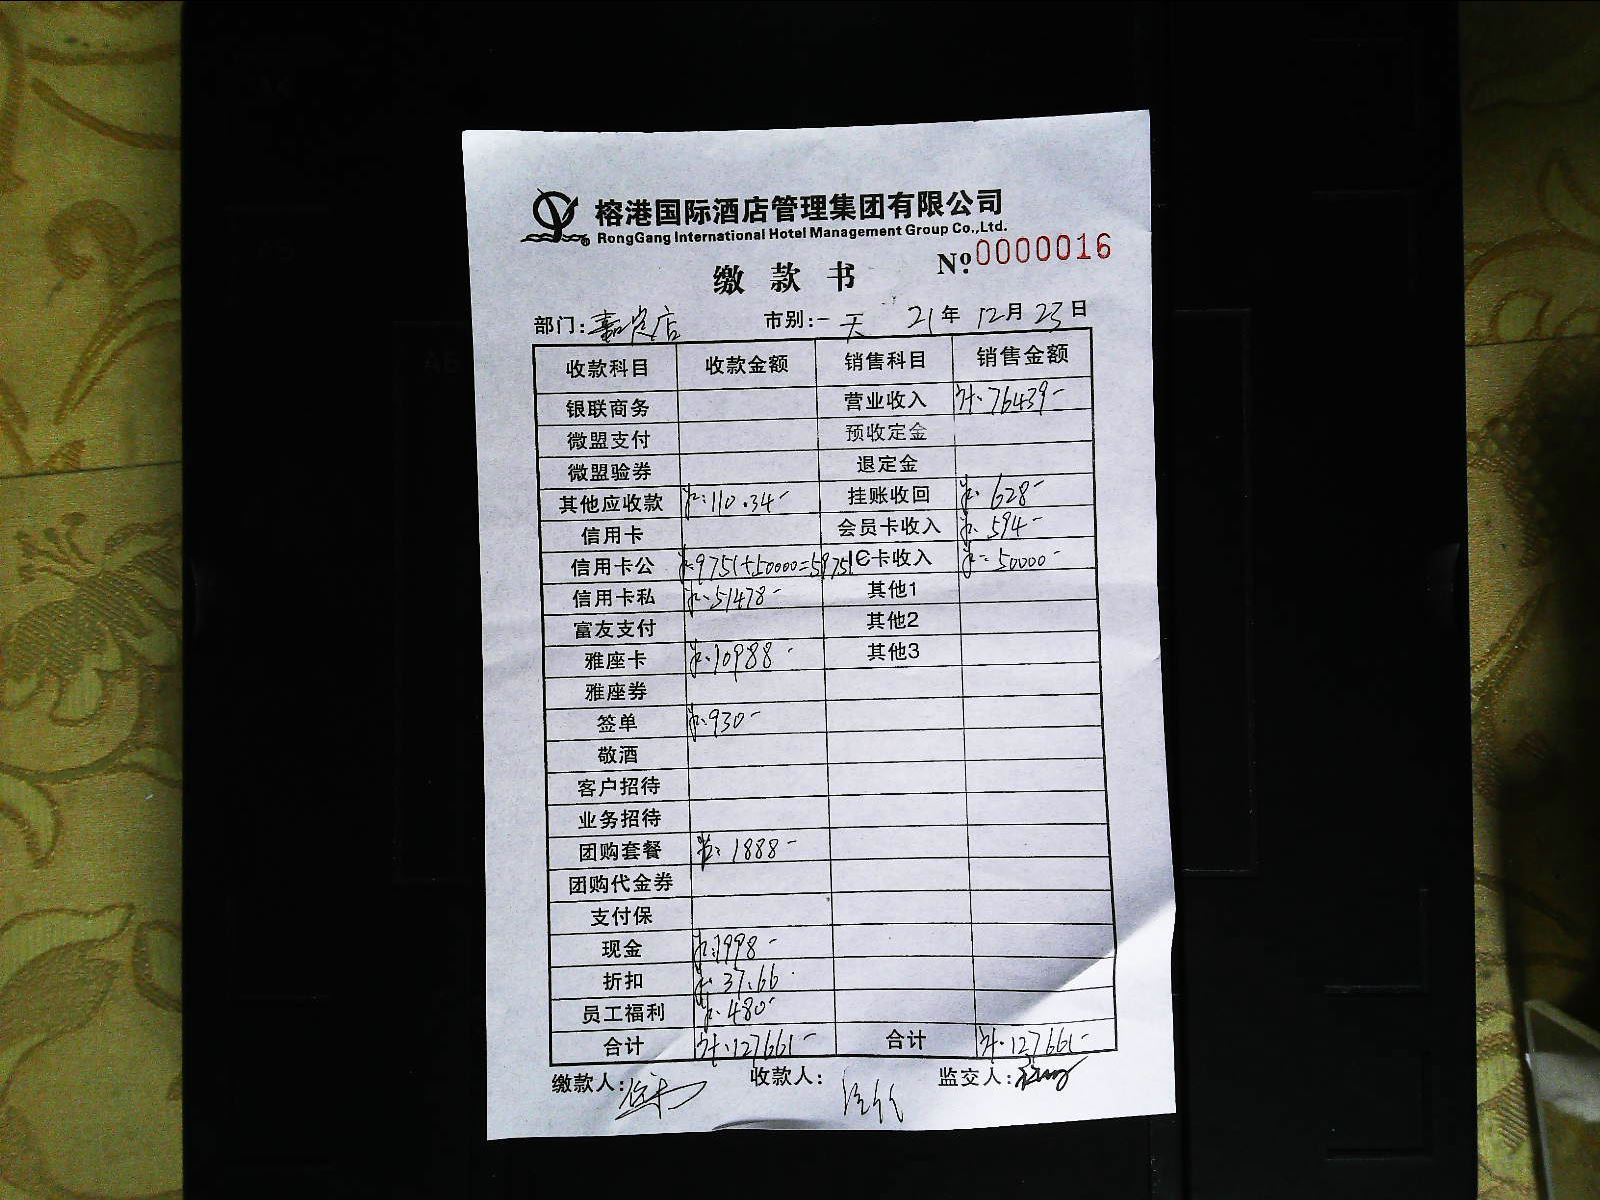 榕港国际酒店管理集团有限公司
RongGang International Hotel Management Group Co.,Ltd.
缴款书 Nº.0000016
部门:嘉定店 市别:一天 21年12月23日
收款科目 收款金额 销售科目 销售金额
银联商务 营业收入 计:76439-
微盟支付 预收定金
微盟验券 退定金
其他应收款 ¥:110.34- 挂账收回 ¥:628-
信用卡 会员卡收入 ¥:594-
信用卡公 ¥:9751+50000=59751 IC卡收入 ¥:50000-
信用卡私 ¥:51478- 其他1
富友支付 其他2
雅座卡 ¥:10988- 其他3
雅座券
签单 ¥:930-
敬酒
客户招待
业务招待
团购套餐 ¥:1888-
团购代金券
支付保
现金 ¥:1998-
折扣 ¥:37.66
员工福利 ¥:480-
合计 计:127661- 合计 计:127661-
缴款人: 收款人: 监交人: